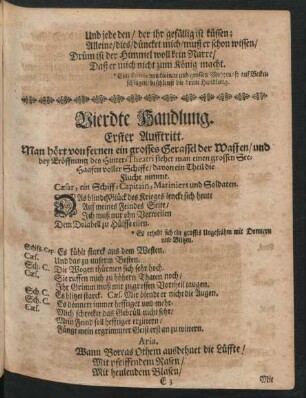 Und jede den / der ihr gefällig ist küssen;
Alleine / dies / düncket mich / muß er schon wissen /
Drüm ist der Himmel woll kein Narre /
Daß er mich nicht zum König macht.
Vierdte Handlung.
Erster Aufftritt.
Man hört von fernen ein grosses Gerassel der Waffen / und
bey Eröffnung des Hinter-Theatri siehet man einen grossen See-
Haafen voller Schiffe / davon ein Theil die
Flucht nimmt.
Cæsar, ein Schiff-Capitain, Mariniers und Soldaten.
Das blinde Glück des Krieges lenckt sich heute
Auf meines Feindes Seite /
Ich muß nur ohn Verweilen
Dem Driabell zu Hülffe eilen.
* Es erhebt sich ein grosses Ungestühm mit Donnern
und Blitzen.
Schiff-Cap. Es kühlt starck aus dem Westen.
Cæs. Und das zu unserm Besten.
Sch. C. Die Wogen thürmen sich sehr hoch.
Cæs. Sie ruffen mich zu höhern Thaten noch /
Ihr Grimm muß mir zu grossen Vortheil taugen.
Sch. C. Es blitzet starck. Cæs. Mir blendet er nicht die Augen.
Sch. C. Es donnert immer hefftiger und mehr.
Cæs. Mich schrecket das Gebrüll nicht sehr /
Mein Feind soll hefftiger erzittern /
Aria.
Wann Borcas Othem ausdehnet die Lüffte /
Mit pfeiffendem Rasen /
Mit heulendem Blasen /
E 3
Mit